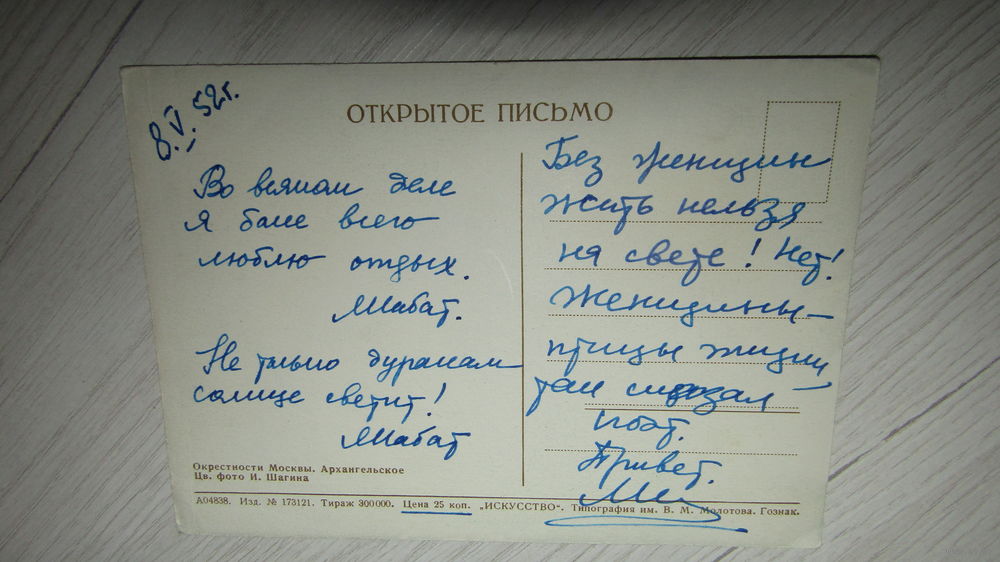 8.V.52г.
ОТКРЫТОЕ ПИСЬМО
Во всяком деле
я боле всего
люблю отдых.
Шабат.
Не только дуракам
солнце светит!
Шабат
Без женщин
жить нельзя
на свете! Нет!
Женщины—
птицы жизни
так сказал
поэт.
Привет.
Окрестности Москвы. Архангельское
Цв. фото И. Шагина
А04838. Изд. № 173121. Тираж 300000. Цена 25 коп. „ИСКУССТВО“. Типография им. В. М. Молотова. Гознак.